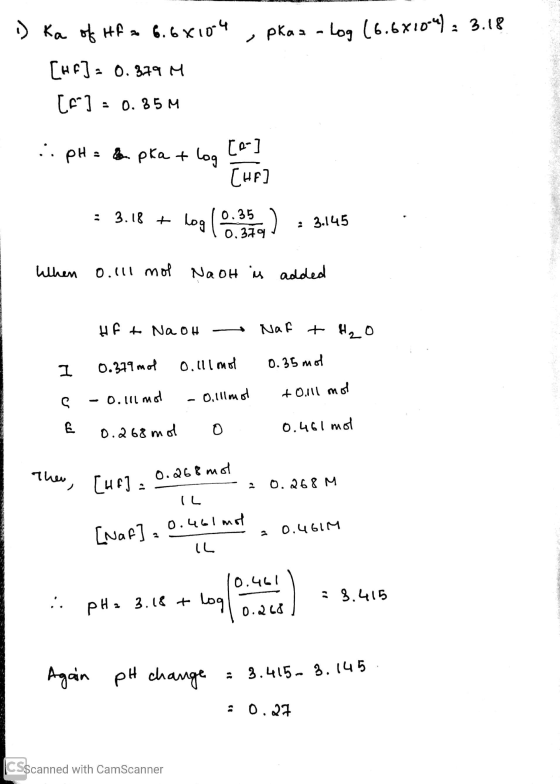 1) Ka of HF = 6.6×10⁻⁴ , pKa = - log (6.6×10⁻⁴) = 3.18
[HF] = 0.379 M
[F⁻] = 0.35 M
∴ pH = pKa + log [F⁻]/[HF]
= 3.18 + log (0.35/0.379) = 3.145
When 0.111 mol NaOH is added
HF + NaOH → NaF + H₂O
I 0.379 mol 0.111 mol 0.35 mol
C - 0.111 mol - 0.111 mol + 0.111 mol
E 0.268 mol 0 0.461 mol
Then, [HF] = 0.268 mol/1L = 0.268 M
[NaF] = 0.461 mol/1L = 0.461M
∴ pH = 3.18 + log (0.461/0.268) = 3.415
Again pH change = 3.415 - 3.145
= 0.27
CS Scanned with CamScanner